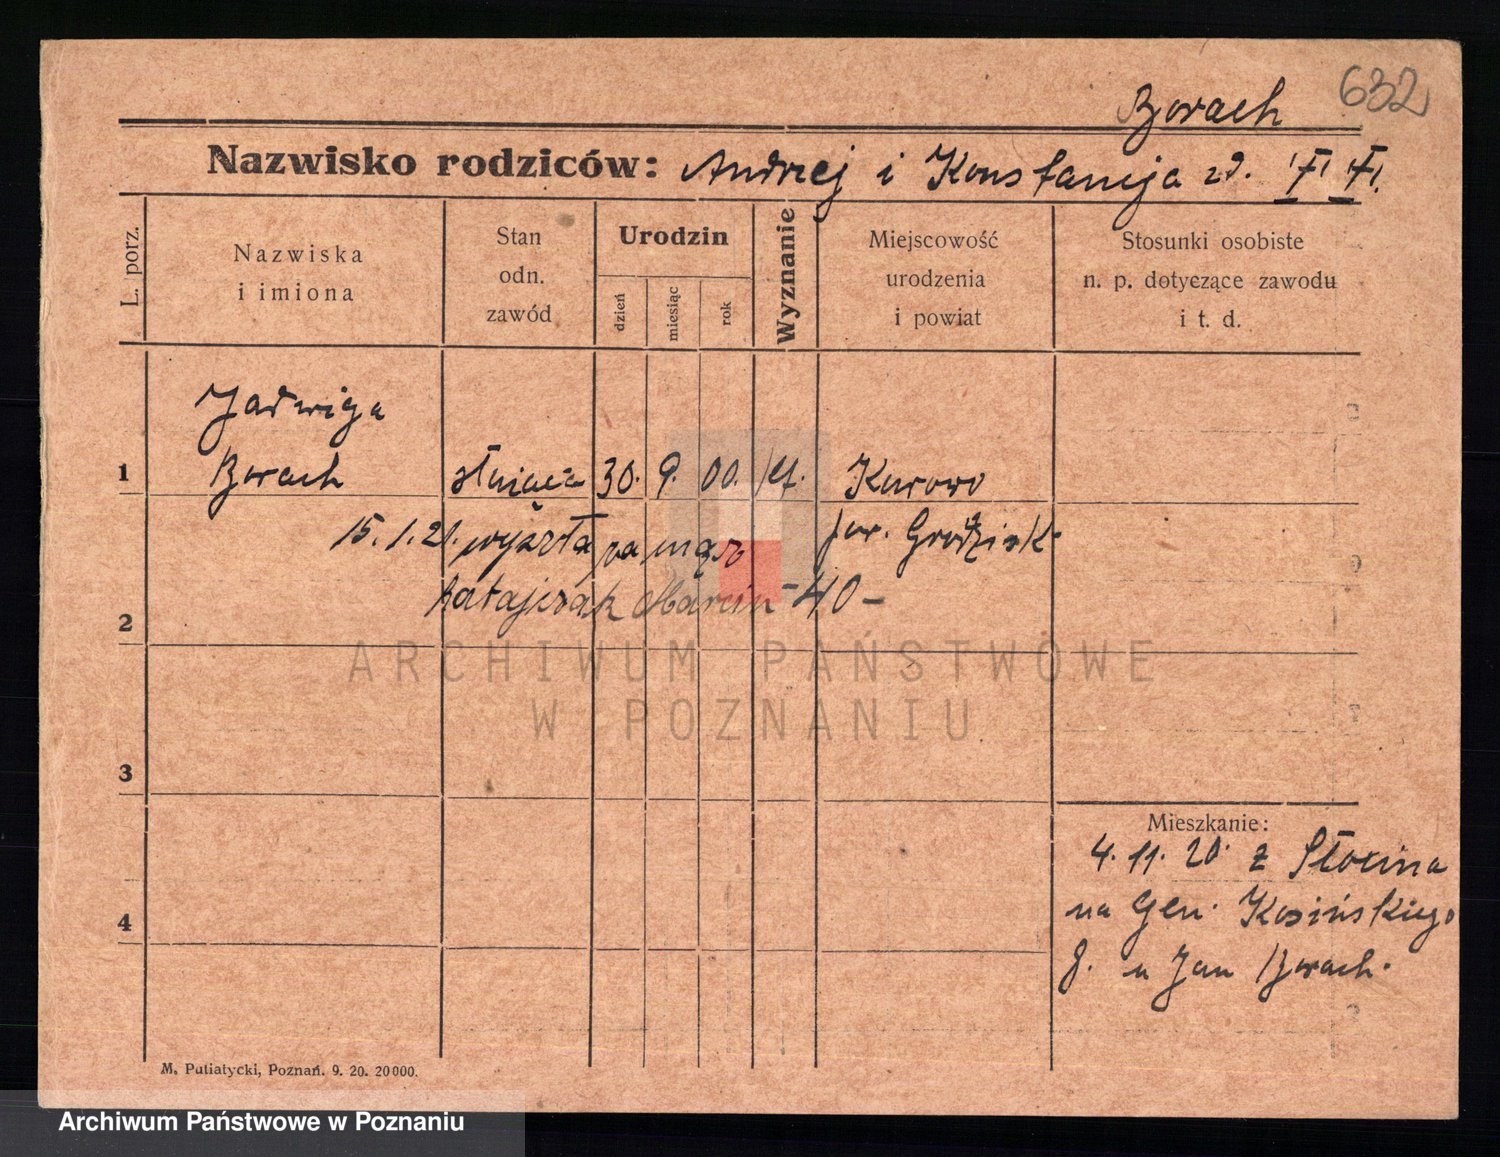 632
Borach
Nazwisko rodziców: Andrzej i Konstancja zd.
L. porz.
Nazwiska i imiona
Stan odn. zawód
Urodzin
dzień
miesiąc
rok
Wyznanie
Miejscowość urodzenia i powiat
Stosunki osobiste n. p. dotyczące zawodu i t. d.
Jadwiga
1 Borach służąca 30. 9. 00. kt. Kurowo
15.1.21. wyszła za mąż pow. Grodzisk
2 Ratajczak Marcin - 40 -
ARCHIWUM PAŃSTWOWE
W POZNANIU
3
Mieszkanie:
4. 11. 20. z Słocina
4 na Gen. Kosińskiego
8. u Jan Borach.
M. Putiatycki, Poznań. 9. 20. 20000.
Archiwum Państwowe w Poznaniu